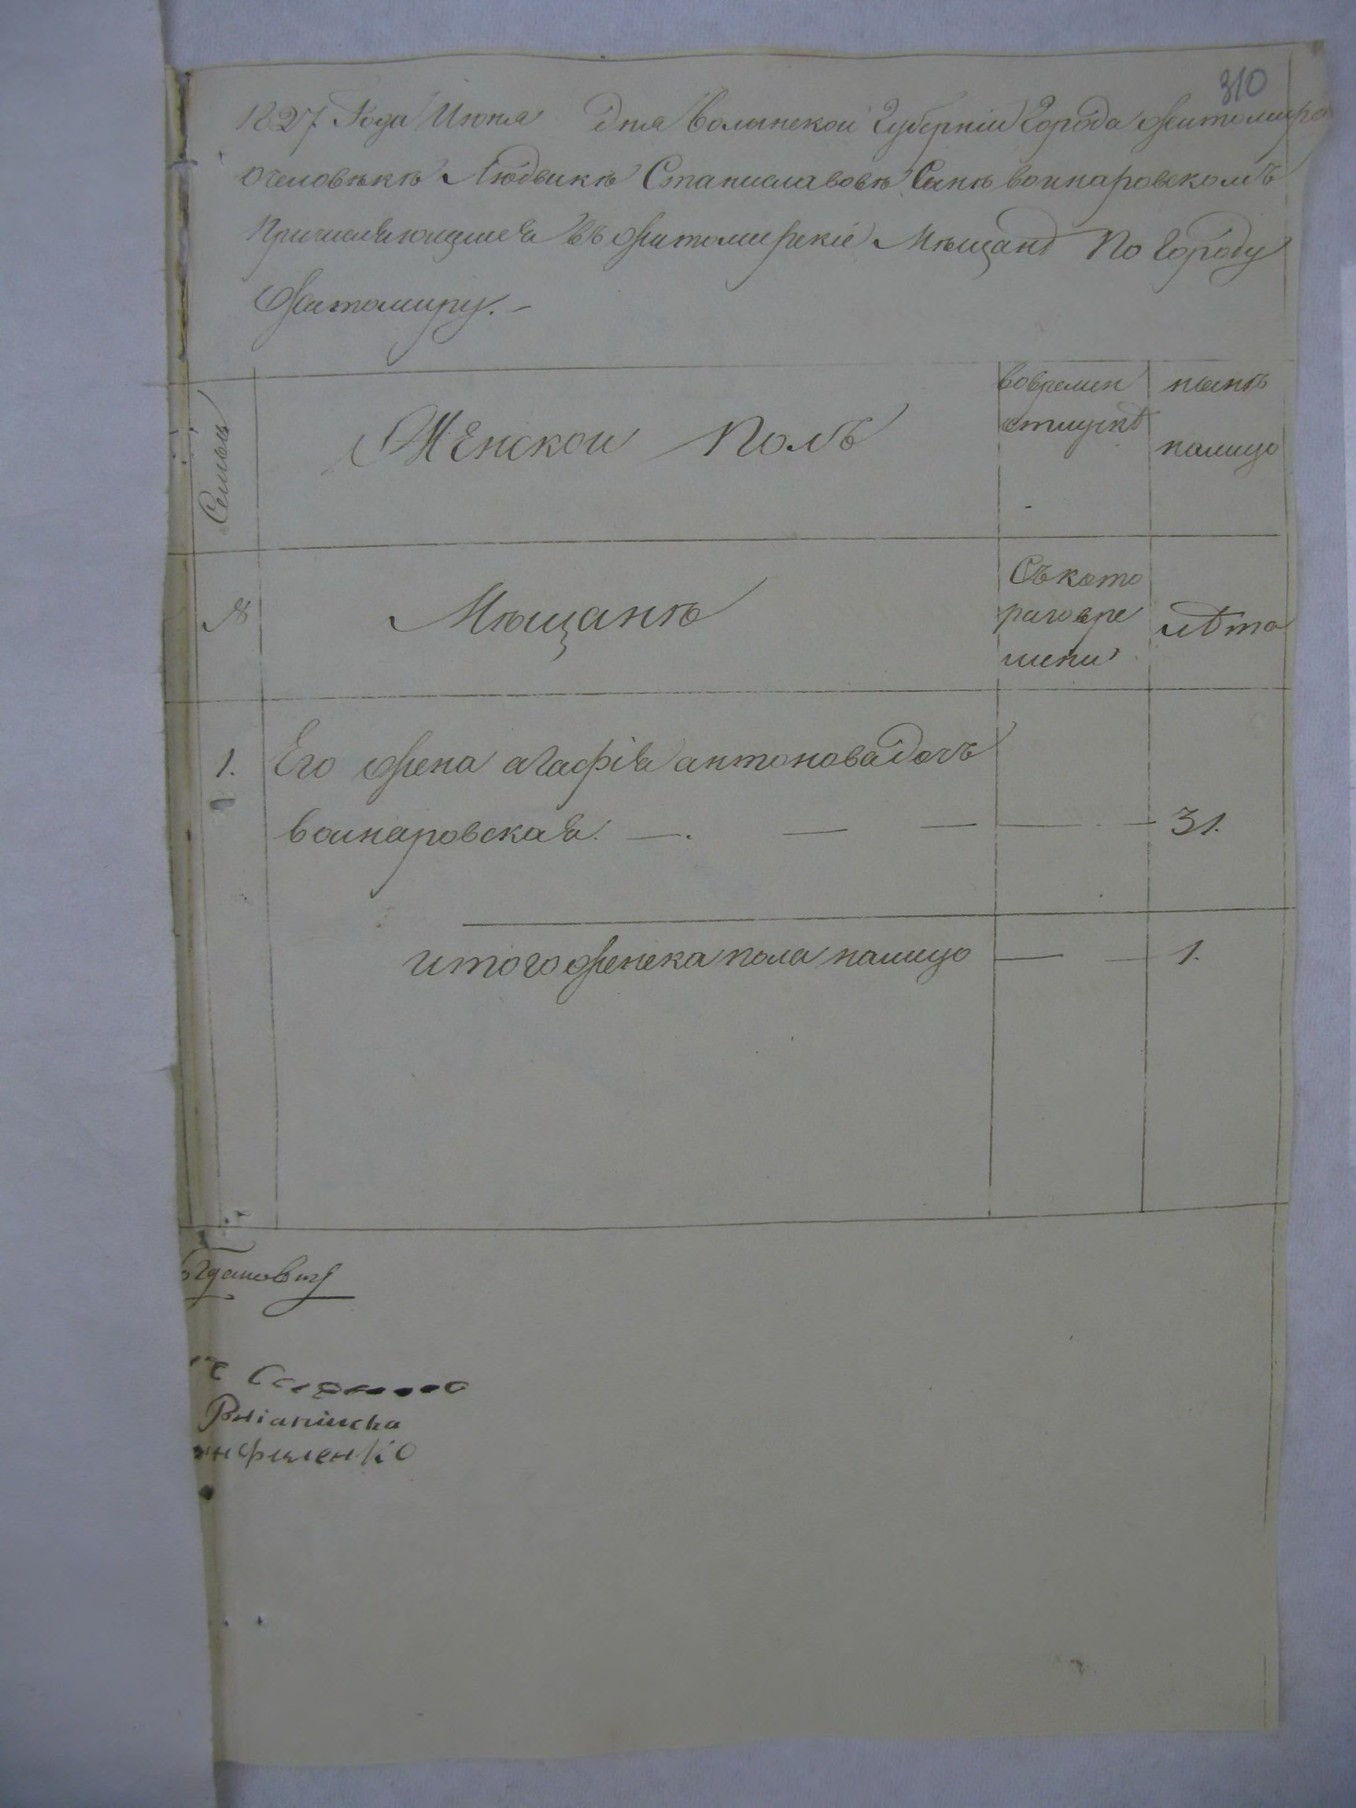 310
1827 Года Июня Дня Волынской Губерніи Города Житомира
о человѣкѣ Людвикѣ Станиславовѣ Сынѣ воинаровскомъ
Причисляющися въ Житомирскіе Мѣщанѣ По Городу
Житомиру. –
Семьи
Женскои Полъ
вовремен
отлучкѣ
нынѣ
налицо
№
Мѣщанѣ
Съ кото
раговре
мени
лѣта
1. Его жена агафія антонова дочь
воинаровская. — . — — — . — 31.
итого женска пола налицо — — 1.